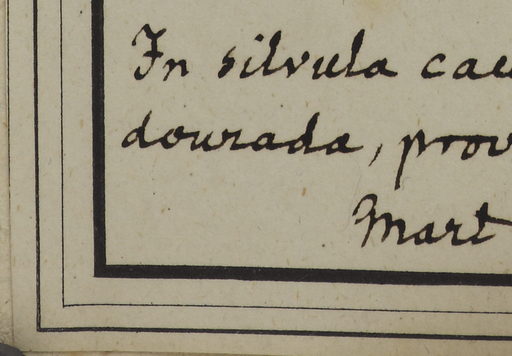 In silvula cae
dourada, prov
Mart